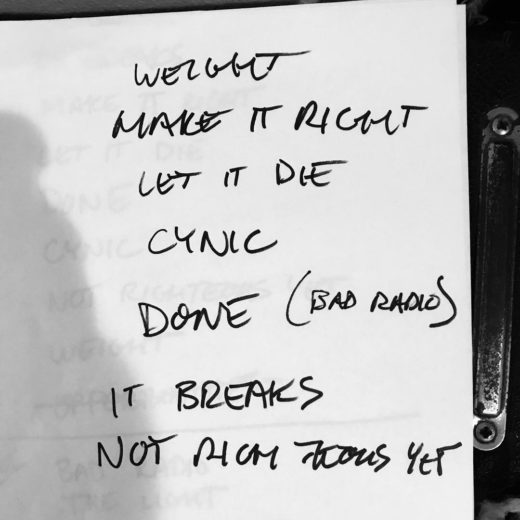 WEIGHT
MAKE IT RIGHT
LET IT DIE
CYNIC
DONE (BAD RADIO)
IT BREAKS
NOT RIGHTEOUS YET